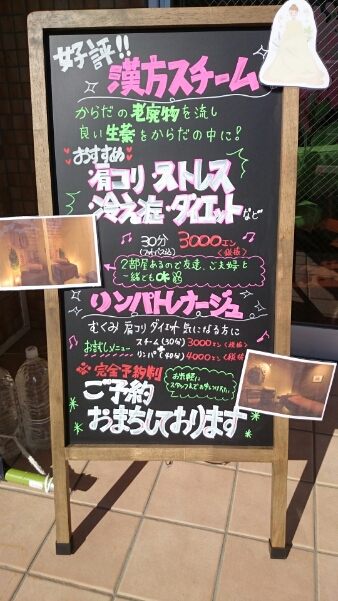 好評!!
漢方スチーム
からだの老廃物を流し
良い生薬をからだの中に!
おすすめ
肩コリ ストレス
冷え症・ダイエットなど
30分 3000エン
(税抜)
2部屋あるので友達、ご夫婦と
一緒でもOK
リンパドレナージュ
むくみ 肩コリ ダイエット 気になる方に
お試しメニュー スチーム(30分) 3000エン(税抜)
リンパ(40分) 4000エン(税抜)
完全予約制
お気軽に
ご予約
おまちしております